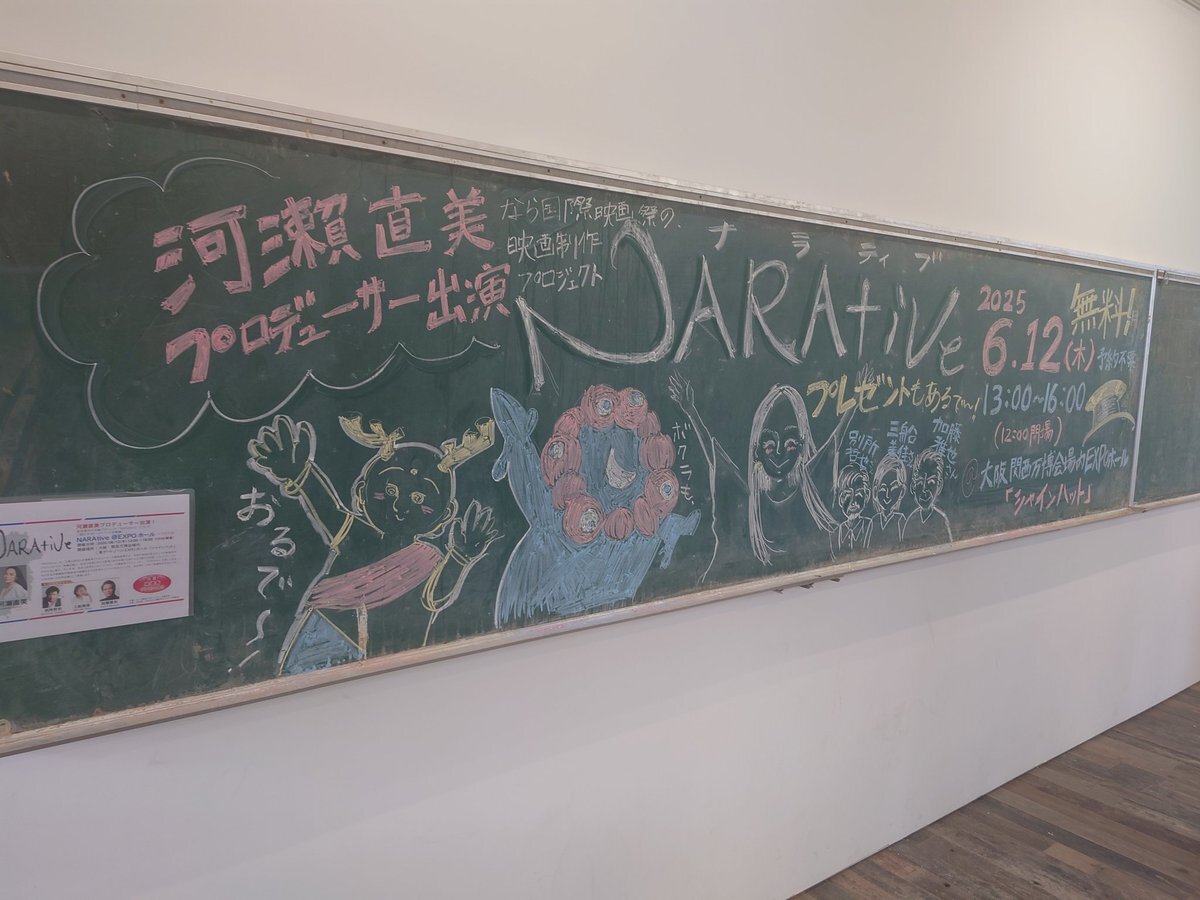 河瀨直美
プロデューサー出演
なら国際映画祭の、
映画制作
プロジェクト
ナラティブ
NARAtiVe
2025
6.12(木)
無料!
予約不要
13:00~16:00
(12:00開場)
@大阪関西万博会場内EXPOホール
「シャインハット」
プレゼントもあるで~!
別所哲也さん
三船美佳さん
加藤雅也さん
ボクラも、
おるで~!
河瀨直美プロデューサー出演!
NARAtiVe
NARAtive @EXPOホール
河瀨直美
別所哲也
三船美佳
加藤雅也